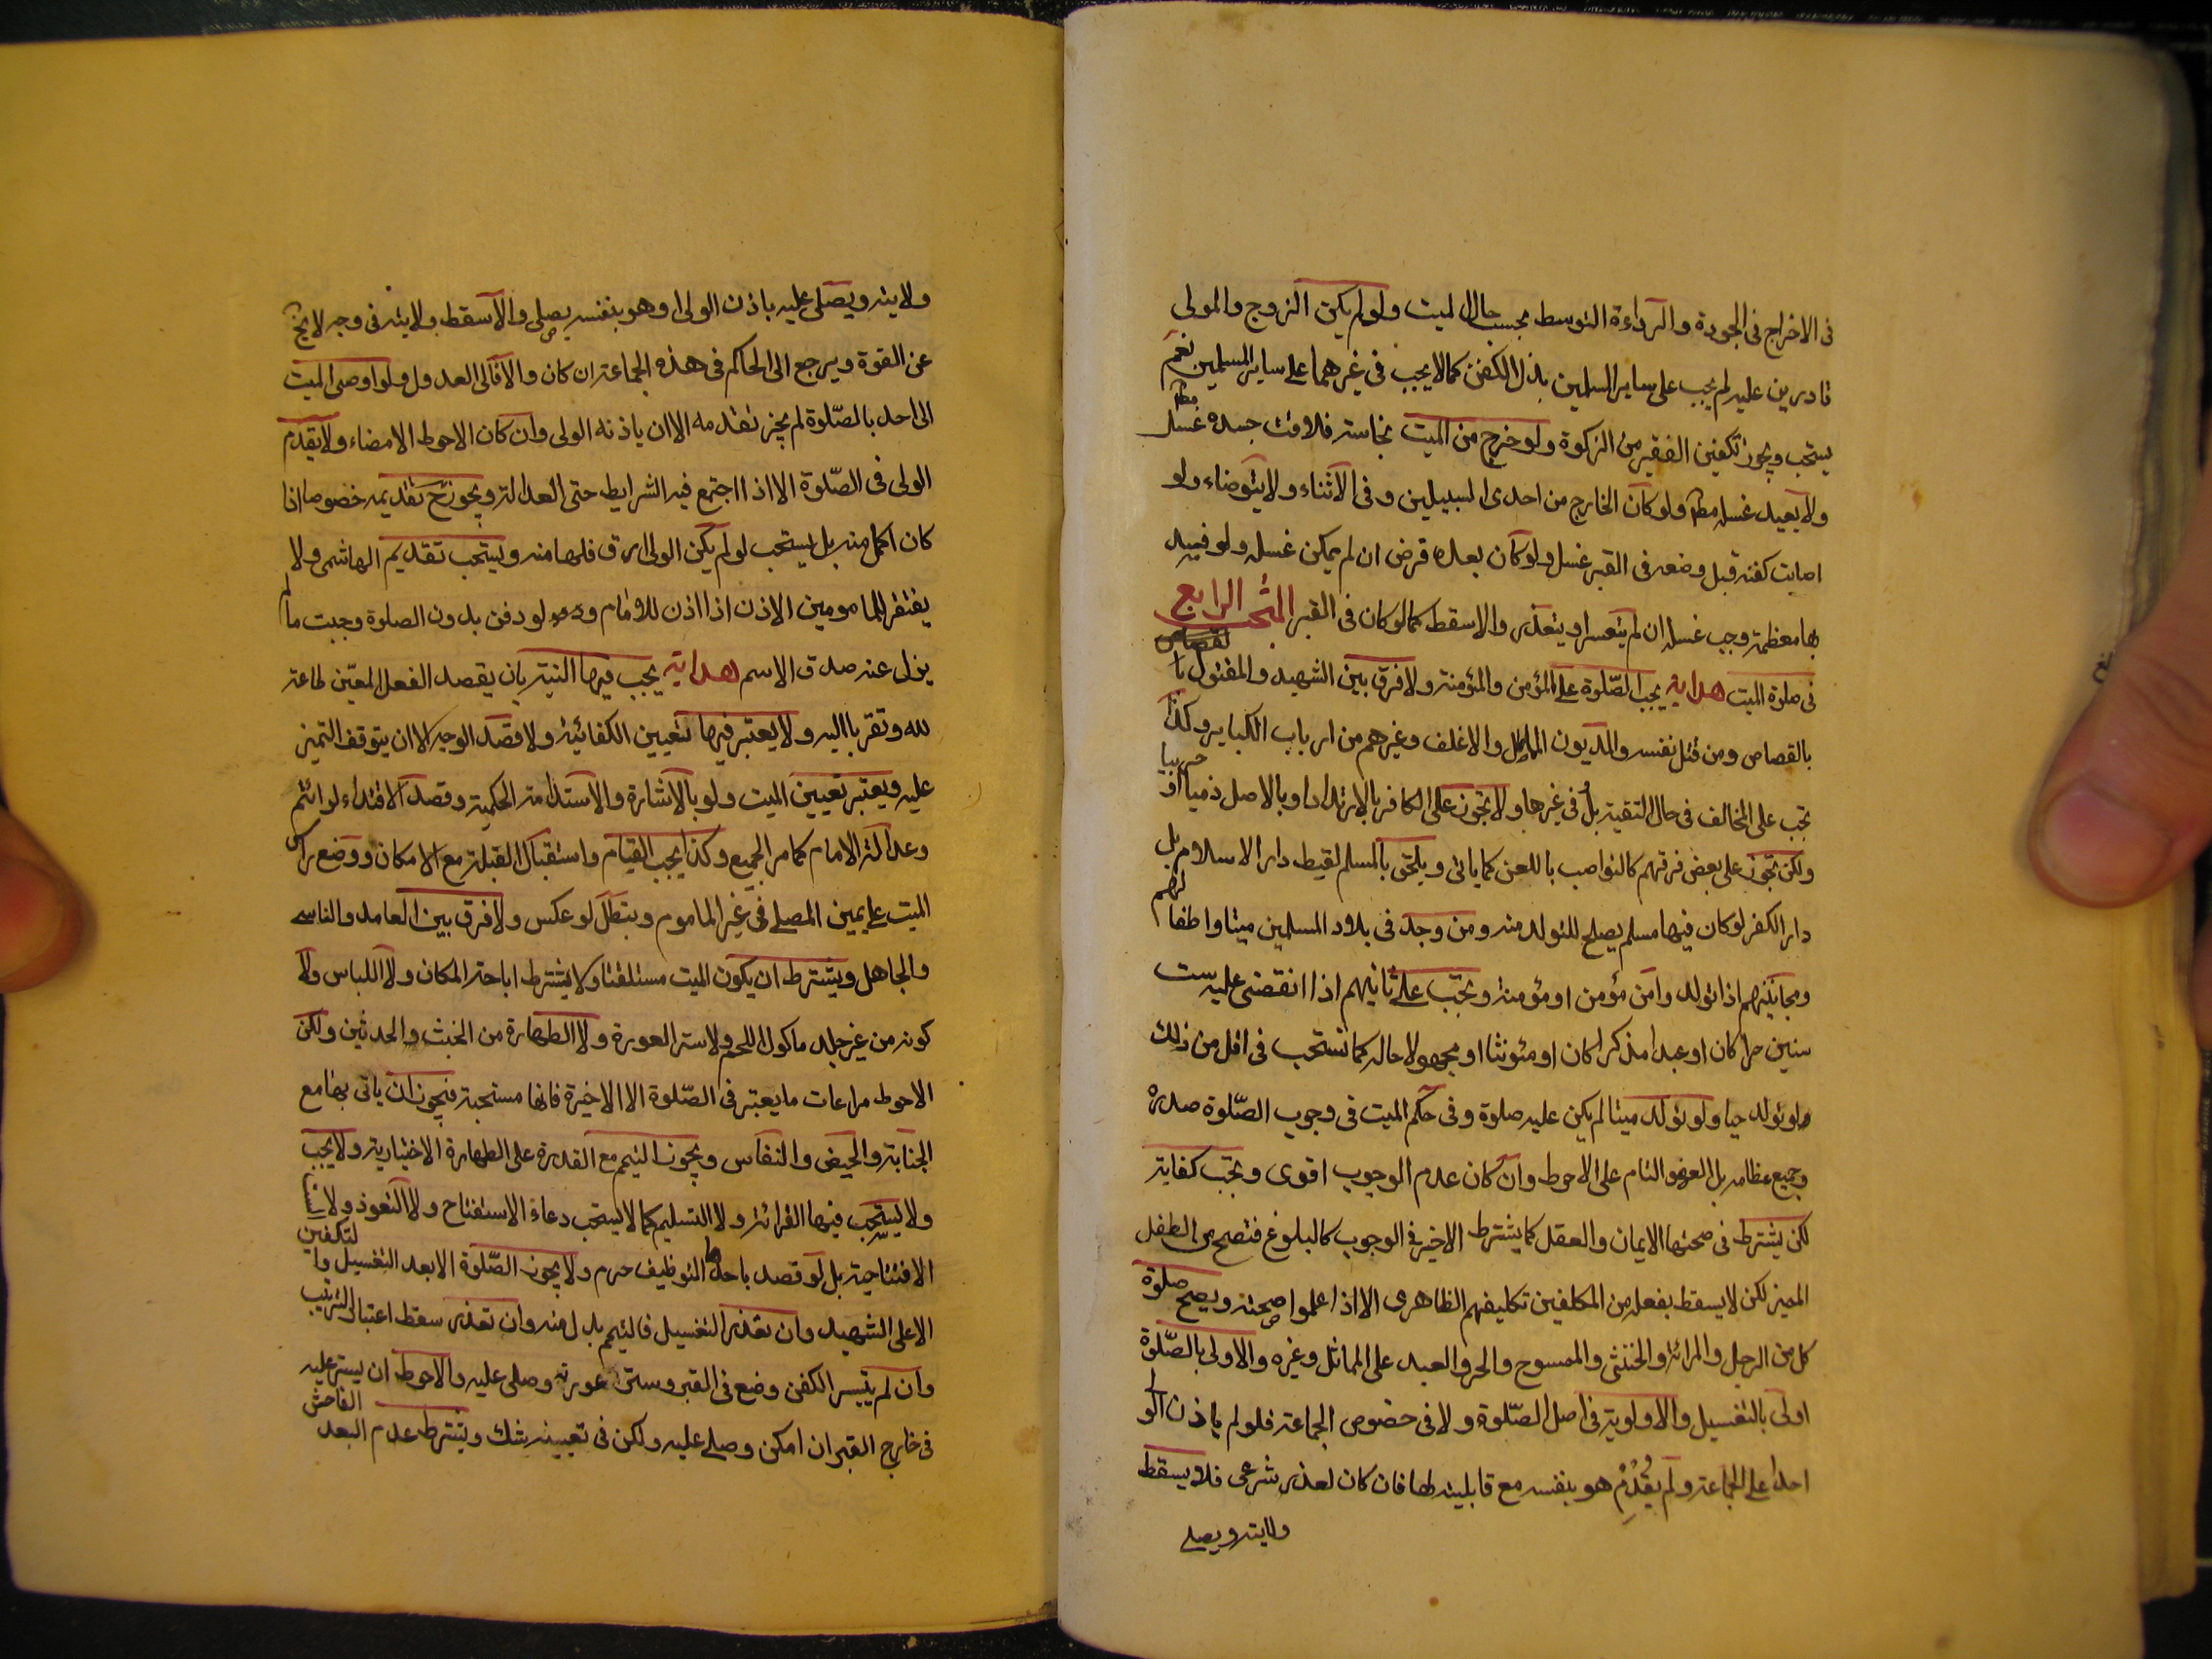 فى الاخراج فى الجودة والرداءة التوسط بحسب حال الميت ولو لم يكن الزوج والمولى
قادرين عليه لم يجب على ساير المسلمين بذل الكفن كما لا يجب فى غيرهما على ساير المسلمين نعم
يستحب ويجوز تكفين الفقير من الزكوة ولو خرج من الميت نجاسة فلاقت جسده غسل
ولا يعيد غسله مط ولو كان الخارج من احدى السبيلين وفى الاثناء ولا يتوضاء ولو
اصابت كفنه قبل وضعه فى القبر غسل ولو كان بعده قرض ان لم يمكن غسله ولو
بها معظمه وجب غسله ان لم يتعسر او يتعذر والا سقط كما لو كان فى القبر المبحث الرابع
فى صلوة الميت هداية يجب الصلوة على المؤمن والمؤمنة ولا فرق بين الشهيد والمقتول
بالقصاص ومن قتل نفسه والمديون المماطل والاغلف وغيرهم من ارباب الكباير وكذا
تجب على المخالف فى حال التقية بل فى غيرها ولا تجوز على الكافر بالارتداد او بالاصل ذميا او حربيا
ولكن تجوز على بعض فرقهم كالنواصب باللعن كما ياتى ويلحق بالمسلم لقيط دار الاسلام بل
دار الكفر لو كان فيها مسلم يصلح للتولد منه ومن وجد فى بلاد المسلمين ميتا واطفالهم
ومجانينهم اذا تولدوا من مؤمن او مؤمنة وتجب على ثانيهم اذا انقضى عليه ست
سنين حرا كان او عبدا مذكرا كان او مئونثا او مجهولا حاله كما تستحب فى اقل من ذلك
لو تولد حيا ولو تولد ميتا لم يكن عليه صلوة وفى حكم الميت فى وجوب الصلوة صدره
وجميع عظامه بل العضو التام على الاحوط وان كان عدم الوجوب اقوى وتجب كفاية
لكن يشترط فى صحتها الايمان والعقل كما يشترط الاخير فى الوجوب كالبلوغ فتصح من الطفل
المميز لكن لا يسقط بفعله من المكلفين تكليفهم الظاهرى الا اذا علموا صحته ويصح صلوة
كل من الرجل والمرائة والخنثى والممسوح والحر والعبد على المماثل وغيره والاولى بالصلوة
اولى بالتغسيل والاولوية فى اصل الصلوة ولا فى خصوص الجماعة فلو لم ياذن الو
احدا على الجماعة ولم يقدم هو بنفسه مع قابليته لها فان كان لعذر شرعى فلا يسقط
ولايته ويصلى
ولايته ويصلى عليه باذن الولى او هو بنفسه يصلى والا سقط ولايته فى وجه لا يخ
عن القوة ويرجع الى الحاكم فى هذه الجماعة ان كان والا فالى العدول ولو اوصى الميت
الى احد بالصلوة لم يجز تقدمه الا ان ياذنه الولى وان كان الاحوط الامضاء ولا يتقدم
الولى فى الصلوة الا اذا اجتمع فيه الشرايط حتى العدالة ويجوز ح تقديمه خصوصا اذا
كان اكمل منه بل يستحب لو لم يكن الولى ارق قلبا منه ويستحب تقديم الهاشمى ولا
يفتقر المامومين الاذن اذا اذن للامام ولو دفن بدون الصلوة وجبت ما لم
يزل عنه صدق الاسم هداية يجب فيها النية بان يقصد الفعل المعين طاعة
لله وتقربا اليه ولا يعتبر فيها تعيين الكفائية ولا قصد الوجه الا ان يتوقف التميز
عليه ويعتبر تعيين الميت ولو بالاشارة والاستدامة الحكمية وقصد الاقتداء لو ائتم
وعدالة الامام كما مر الجميع وكذا يجب القيام واستقبال القبلة مع الامكان ووضع راس
الميت على يمين المصلى فى غير الماموم وبتطل لو عكس ولا فرق بين العامد والناسى
والجاهل ويشترط ان يكون الميت مستلقيا ولا يشترط اباحة المكان ولا اللباس ولا
كونه من غير جلد ماكول اللحم ولا ستر العورة ولا الطهارة من الخبث والحدثين ولكن
الاحوط مراعات ما يعتبر فى الصلوة الا الاخيرة فانها مستحبة فيجوز ان ياتى بها مع
الجنابة والحيض والنفاس ويجوز التيمم مع القدرة على الطهارة الاختيارية ولا يجب
ولا يستحب فيها القرائة ولا التسليم كما لا يستحب دعاء الاستفتاح ولا التعوذ ولا
الافتتاحية بل لو قصد باحدها التوظيف حرم ولا يجوز الصلوة الا بعد التغسيل والتكفين
الا على الشهيد وان تعذر التغسيل فالتيمم بدل منه وان تعذر سقط اعتبار الترتيب
وان لم يتيسر الكفن وضع فى القبر وستر عورته وصلى عليه والاحوط ان يستر عليه
فى خارج القبر ان امكن وصلى عليه ولكن فى تعيينه شك ويشترط عدم البعد الفاحش